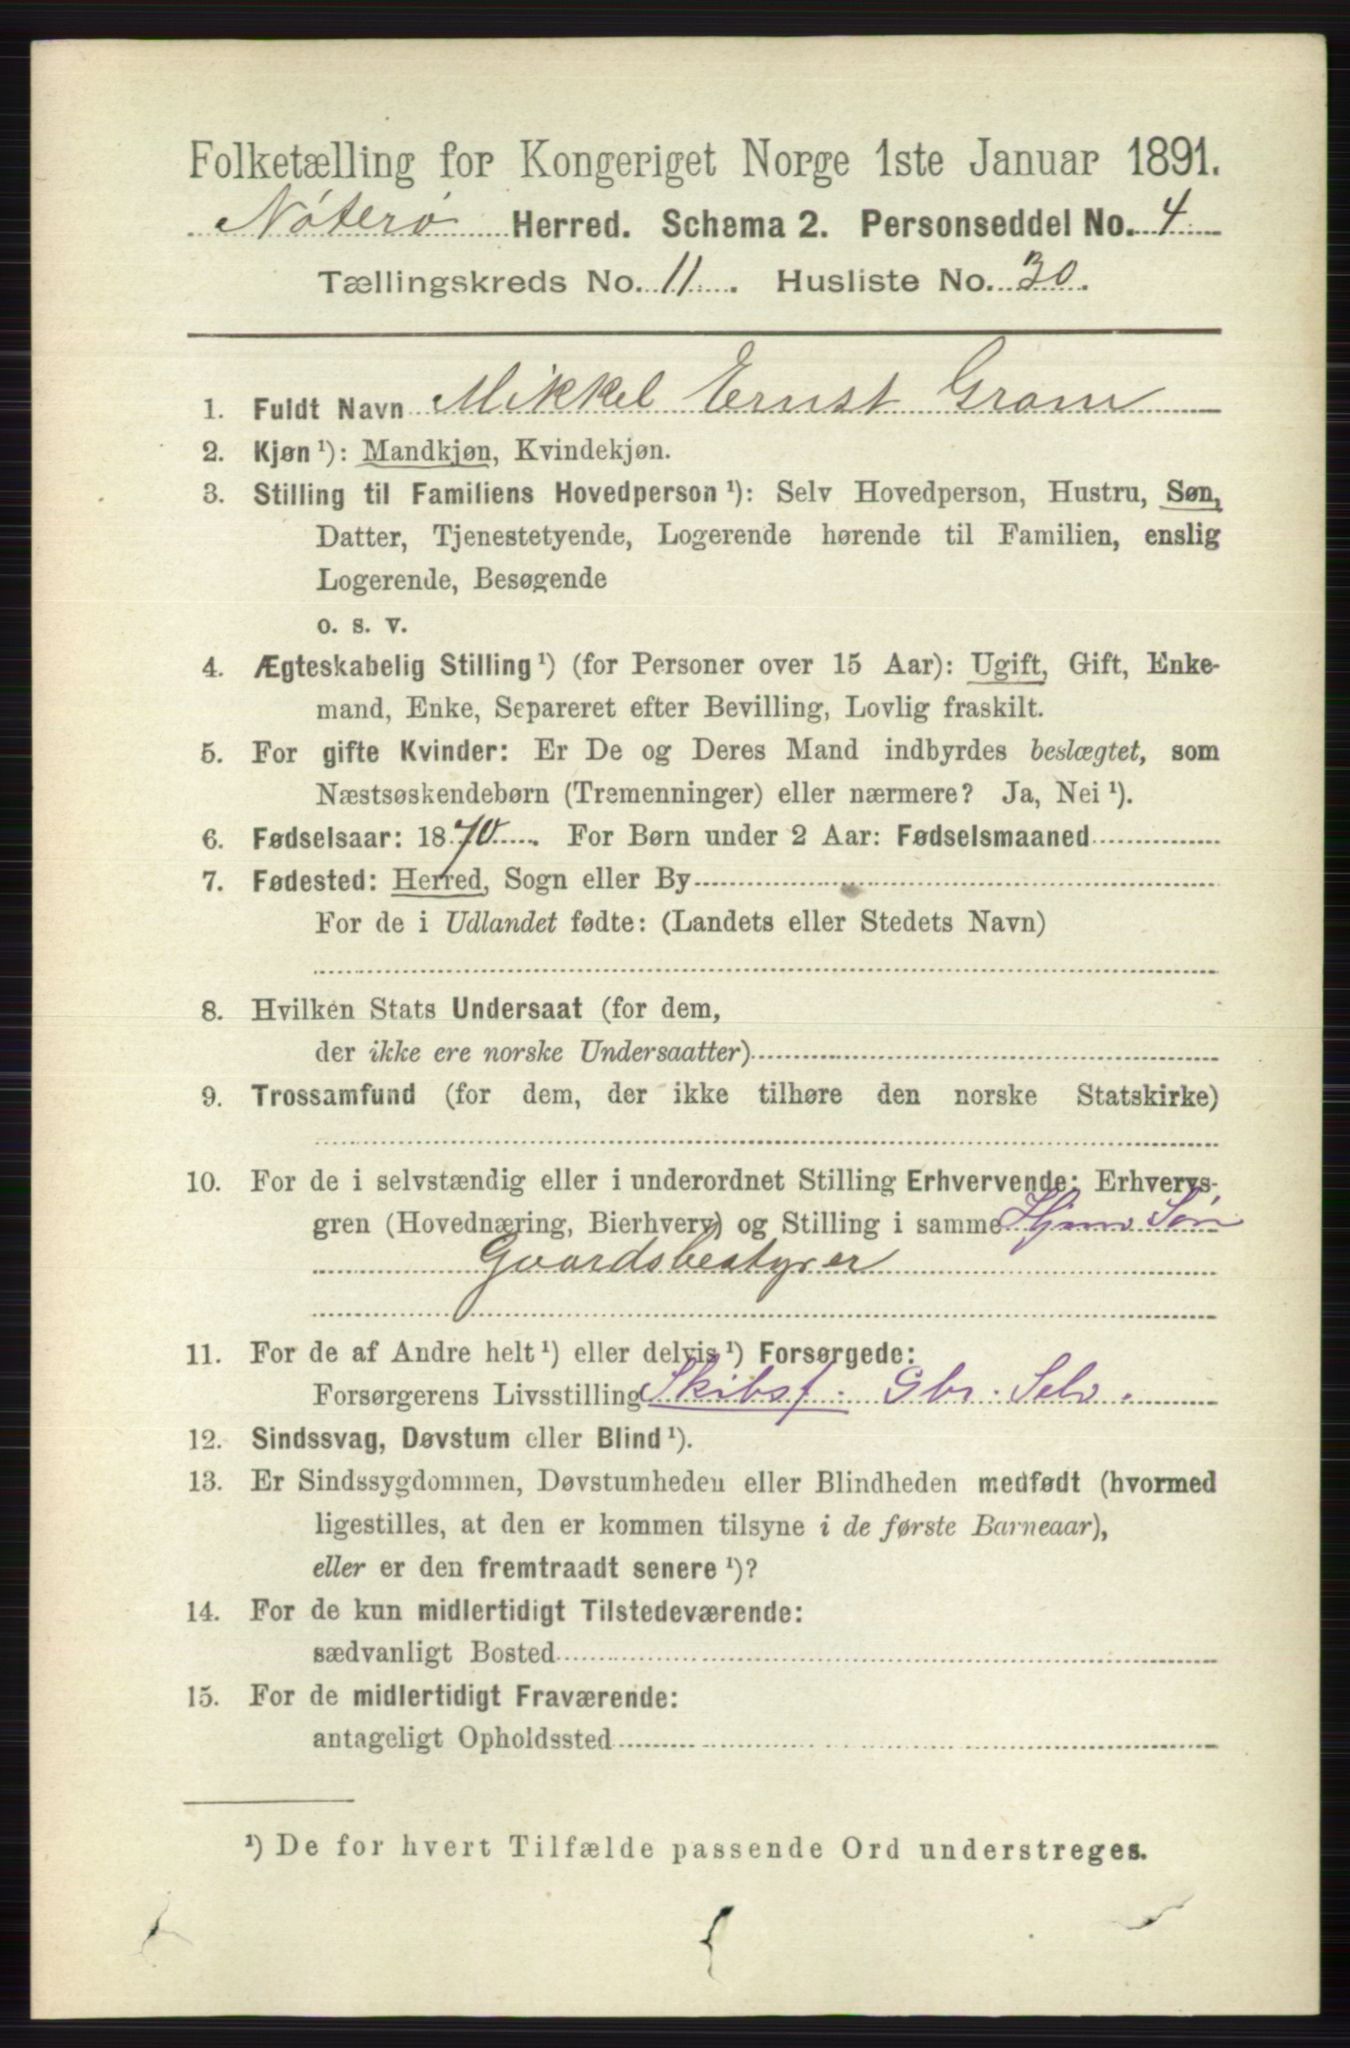 Folketælling for Kongeriget Norge 1ste Januar 1891.
Nøterø Herred. Schema 2. Personseddel No. 4
Tællingskreds No. 11. Husliste No. 30.
1. Fuldt Navn Mikkel Ernst Gram
2. Kjøn ¹): Mandkjøn, Kvindekjøn.
3. Stilling til Familiens Hovedperson ¹): Selv Hovedperson, Hustru, Søn,
Datter, Tjenestetyende, Logerende hørende til Familien, enslig
Logerende, Besøgende
o. s. v.
4. Ægteskabelig Stilling ¹) (for Personer over 15 Aar): Ugift, Gift, Enke-
mand, Enke, Separeret efter Bevilling, Lovlig fraskilt.
5. For gifte Kvinder: Er De og Deres Mand indbyrdes beslægtet, som
Næstsøskendebørn (Tremenninger) eller nærmere? Ja, Nei ¹).
6. Fødselsaar: 1870. For Børn under 2 Aar: Fødselsmaaned
7. Fødested: Herred, Sogn eller By
For de i Udlandet fødte: (Landets eller Stedets Navn)
8. Hvilken Stats Undersaat (for dem,
der ikke ere norske Undersaatter)
9. Trossamfund (for dem, der ikke tilhøre den norske Statskirke)
10. For de i selvstændig eller i underordnet Stilling Erhvervende: Erhvervs-
gren (Hovednæring, Bierhverv) og Stilling i samme Hjemv Søn
Gaardsbestyrer
11. For de af Andre helt ¹) eller delvis ¹) Forsørgede:
Forsørgerens Livsstilling Skibsf. Gbr. Selv.
12. Sindssvag, Døvstum eller Blind ¹).
13. Er Sindssygdommen, Døvstumheden eller Blindheden medfødt (hvormed
ligestilles, at den er kommen tilsyne i de første Barneaar),
eller er den fremtraadt senere ¹)?
14. For de kun midlertidigt Tilstedeværende:
sædvanligt Bosted
15. For de midlertidigt Fraværende:
antageligt Opholdssted
¹) De for hvert Tilfælde passende Ord understreges.